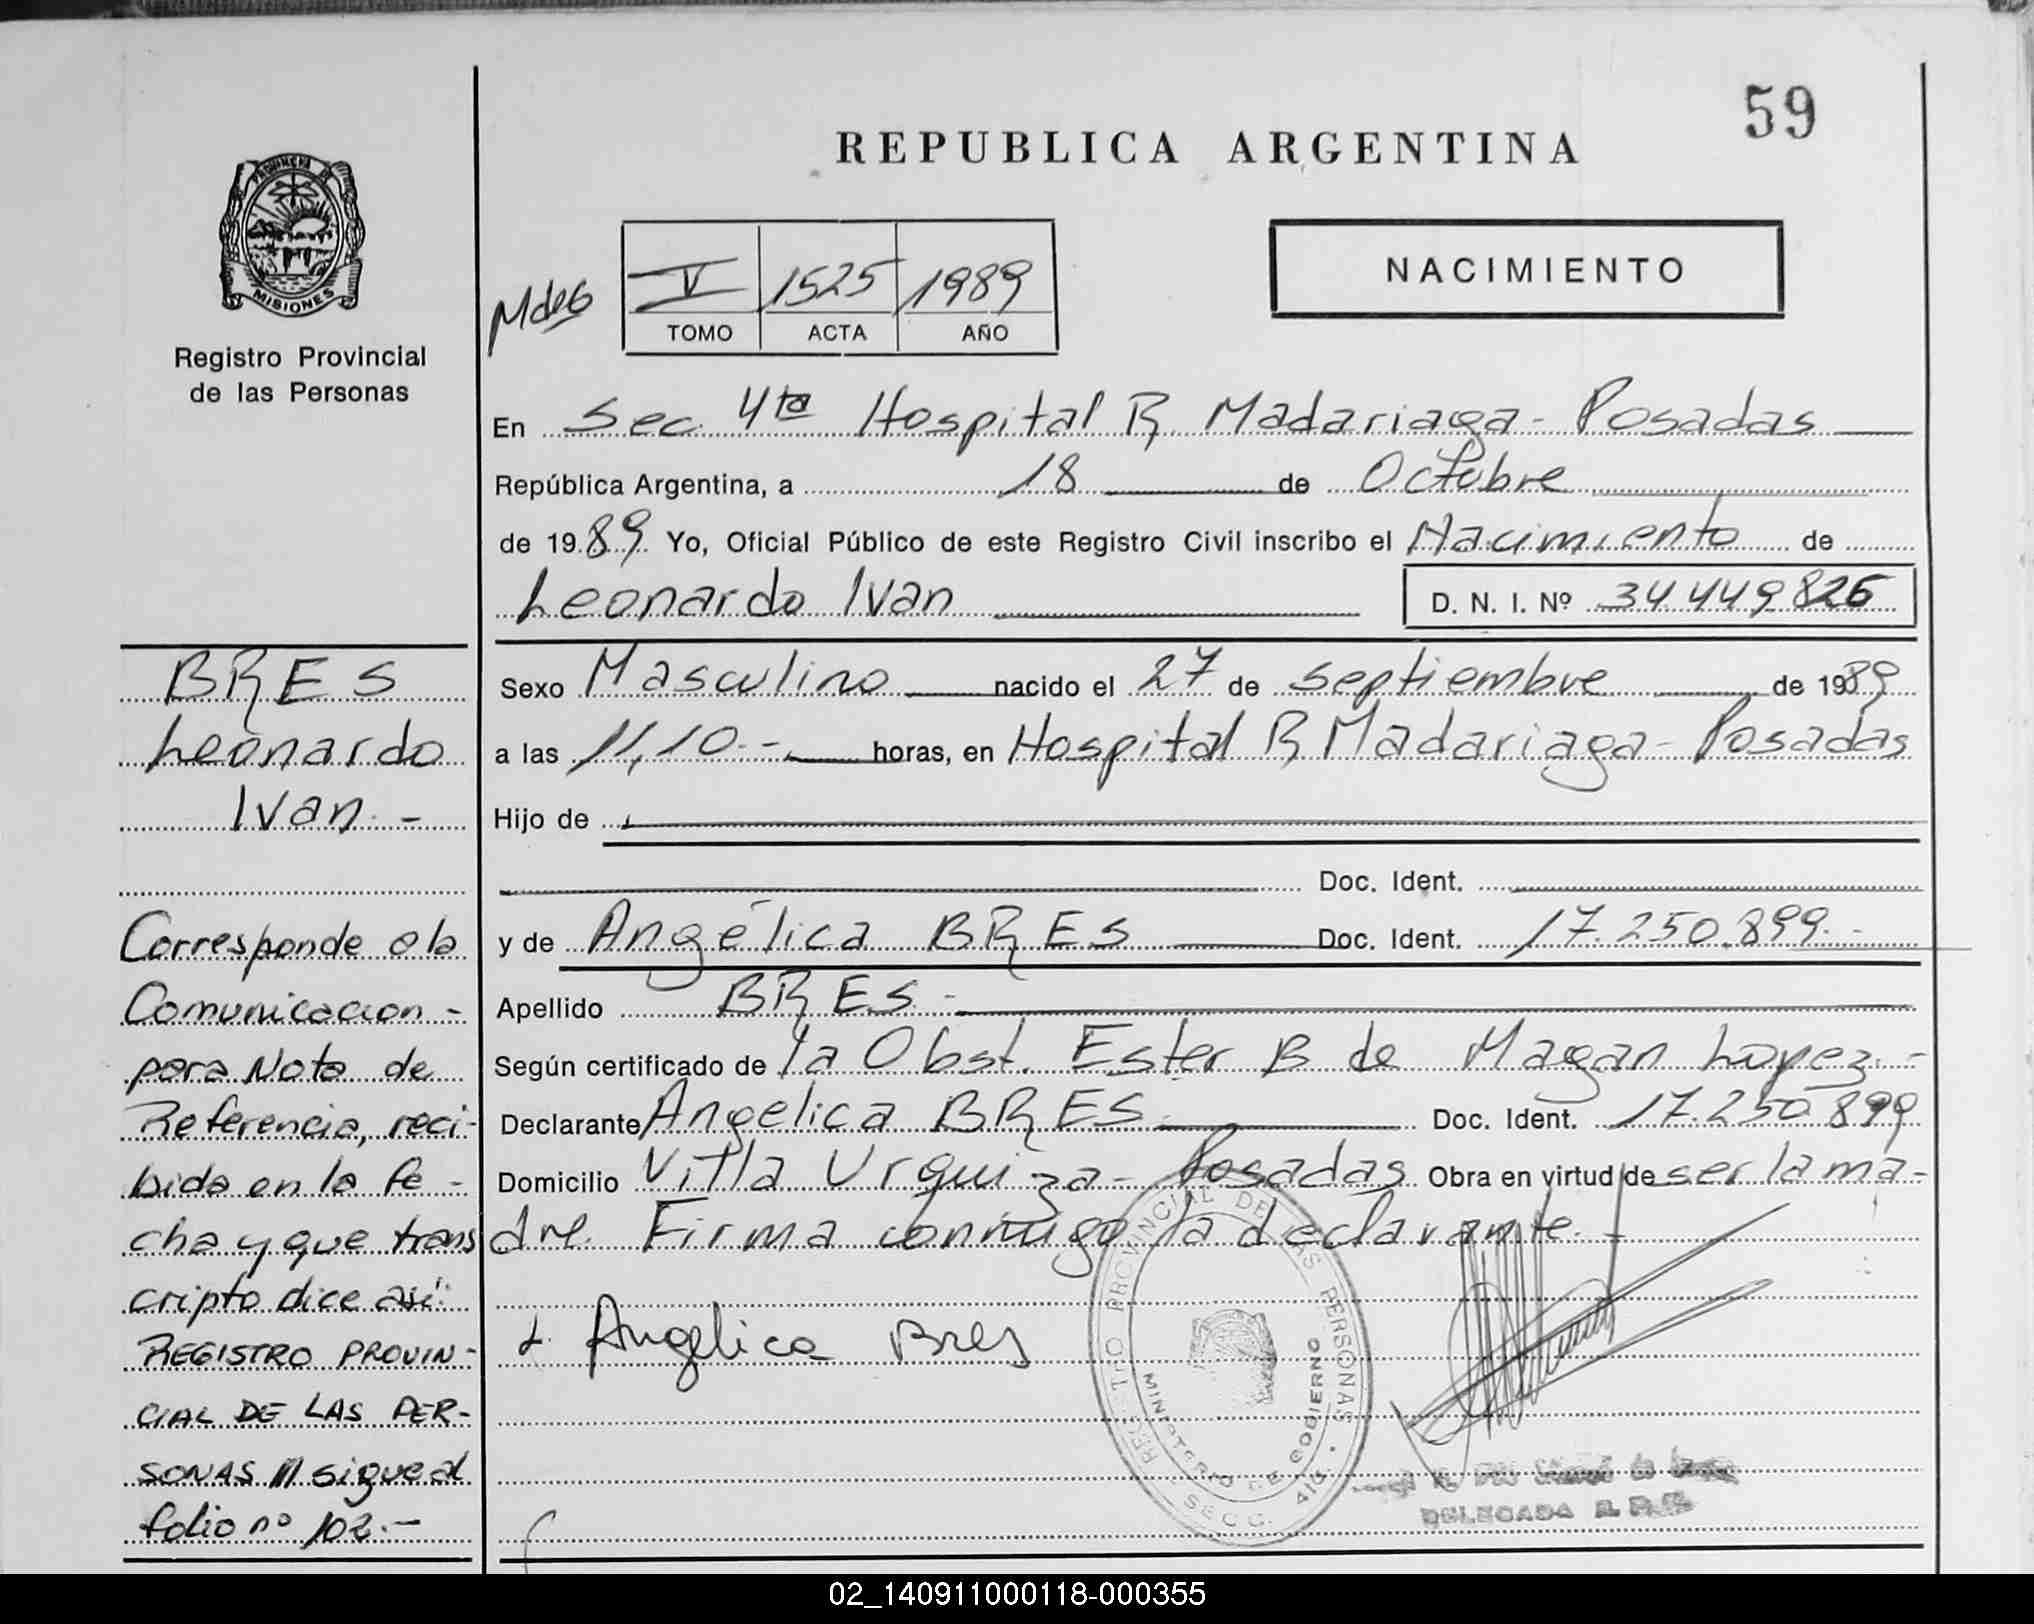 59
REPUBLICA ARGENTINA
PROVINCIA DE
MISIONES
Registro Provincial
de las Personas
NACIMIENTO
V 1525 1989
TOMO ACTA AÑO
En Sec. 4ta Hospital R. Madariaga - Posadas
República Argentina, a 18 de Octubre
de 1989 Yo, Oficial Público de este Registro Civil inscribo el Nacimiento de
Leonardo Ivan D. N. I. Nº 34.449.826
Sexo Masculino nacido el 27 de septiembre de 1989
a las 11,10.- horas, en Hospital R. Madariaga - Posadas
Hijo de
Doc. Ident.
y de Angélica BRES Doc. Ident. 17.250.899.-
Apellido BRES.-
Según certificado de la Obst. Ester B de Magan Lopez.-
Declarante Angelica BRES. Doc. Ident. 17.250.899
Domicilio Villa Urquiza - Posadas Obra en virtud de ser la ma-
dre. Firma conmigo la declarante.-
Angelica Bres
REGISTRO PROVINCIAL DE LAS PERSONAS
MINISTERIO DE GOBIERNO
SECC. 4ta.
DELEGADA R.P.P.
BRES
Leonardo
Ivan.-
Corresponde a la
Comunicacion -
para Nota de
Referencia, reci-
bida en la fe -
cha y que trans
cripto dice así:
REGISTRO PROVIN-
CIAL DE LAS PER-
SONAS /// sigue al
folio nº 102.-
02_140911000118-000355